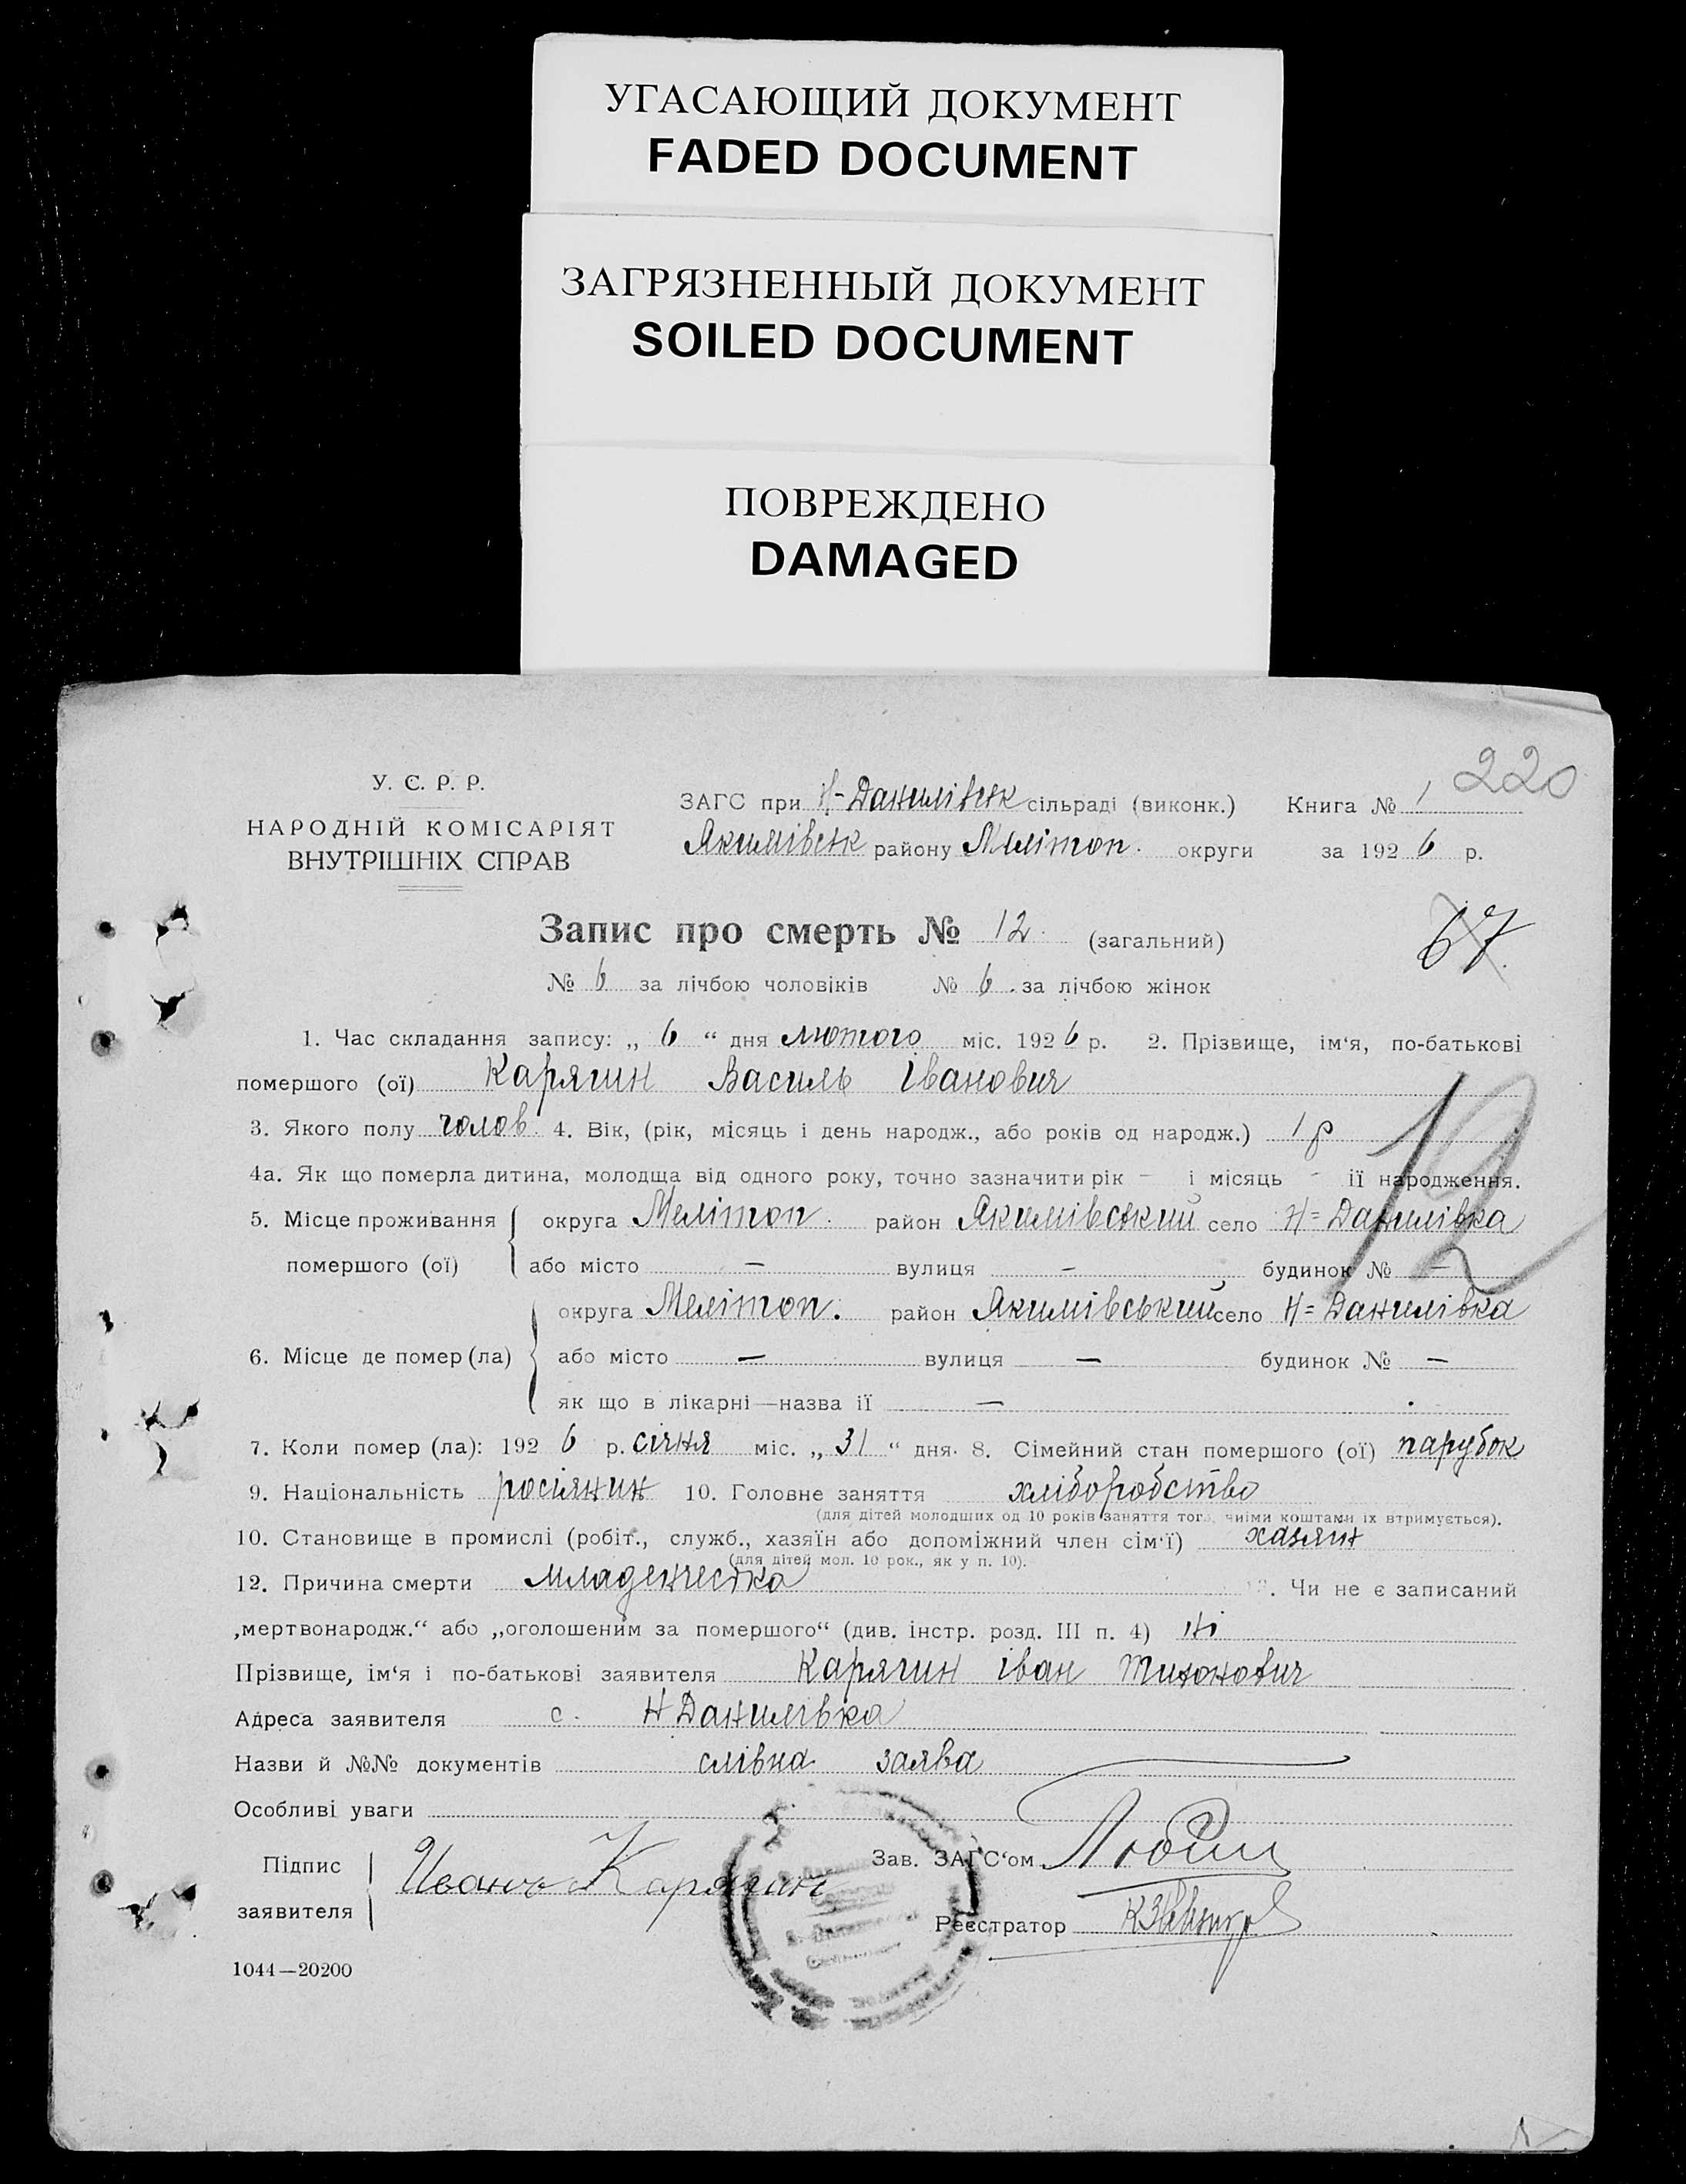 УГАСАЮЩИЙ ДОКУМЕНТ
FADED DOCUMENT
ЗАГРЯЗНЕННЫЙ ДОКУМЕНТ
SOILED DOCUMENT
ПОВРЕЖДЕНО
DAMAGED
220
У. Є. Р. Р.
НАРОДНІЙ КОМІСАРІЯТ
ВНУТРІШНІХ СПРАВ
ЗАГС при Н-Данилівськ сільраді (виконк.) Книга № 1
Якимівськ району Мелітоп. округи за 1926 р.
Запис про смерть № 12. (загальний)
67.
№ 6 за лічбою чоловіків № 6. за лічбою жінок
1. Час складання запису: „ 6 “ дня лютого міс. 1926 р. 2. Прізвище, ім‘я, по-батькові
помершого (ої) Карягин Василь Іванович
3. Якого полу чолов. 4. Вік, (рік, місяць і день народж., або років од народж.) 1 р
12
4а. Як що померла дитина, молодща від одного року, точно зазначити рік – і місяць – її народження.
5. Місце проживання помершого (ої) округа Мелітоп. район Якимівський село Н=Данилівка
або місто – вулиця – будинок № –
6. Місце де помер (ла) округа Мелітоп. район Якимівський село Н=Данилівка
або місто — вулиця — будинок № —
як що в лікарні—назва її —
7. Коли помер (ла): 1926 р. січня міс. „ 31 “ дня. 8. Сімейний стан помершого (ої) парубок
9. Національність росіянин 10. Головне заняття хліборобство
(для дітей молодших од 10 років заняття того, чиїми коштами їх втримується).
10. Становище в промислі (робіт., служб., хазяїн або допоміжний член сім‘ї) хазяин
(для дітей мол. 10 рок., як у п. 10).
12. Причина смерти младенческа 13. Чи не є записаний
„мертвонародж.“ або „оголошеним за помершого“ (див. інстр. розд. III п. 4) ні
Прізвище, ім‘я і по-батькові заявителя Карягин Іван Тихонович
Адреса заявителя с. Н Данилівка
Назви й №№ документів слівна заява
Особливі уваги
Підпис заявителя Иванъ Карягин
Зав. ЗАГС‘ом
Реєстратор
1044—20200